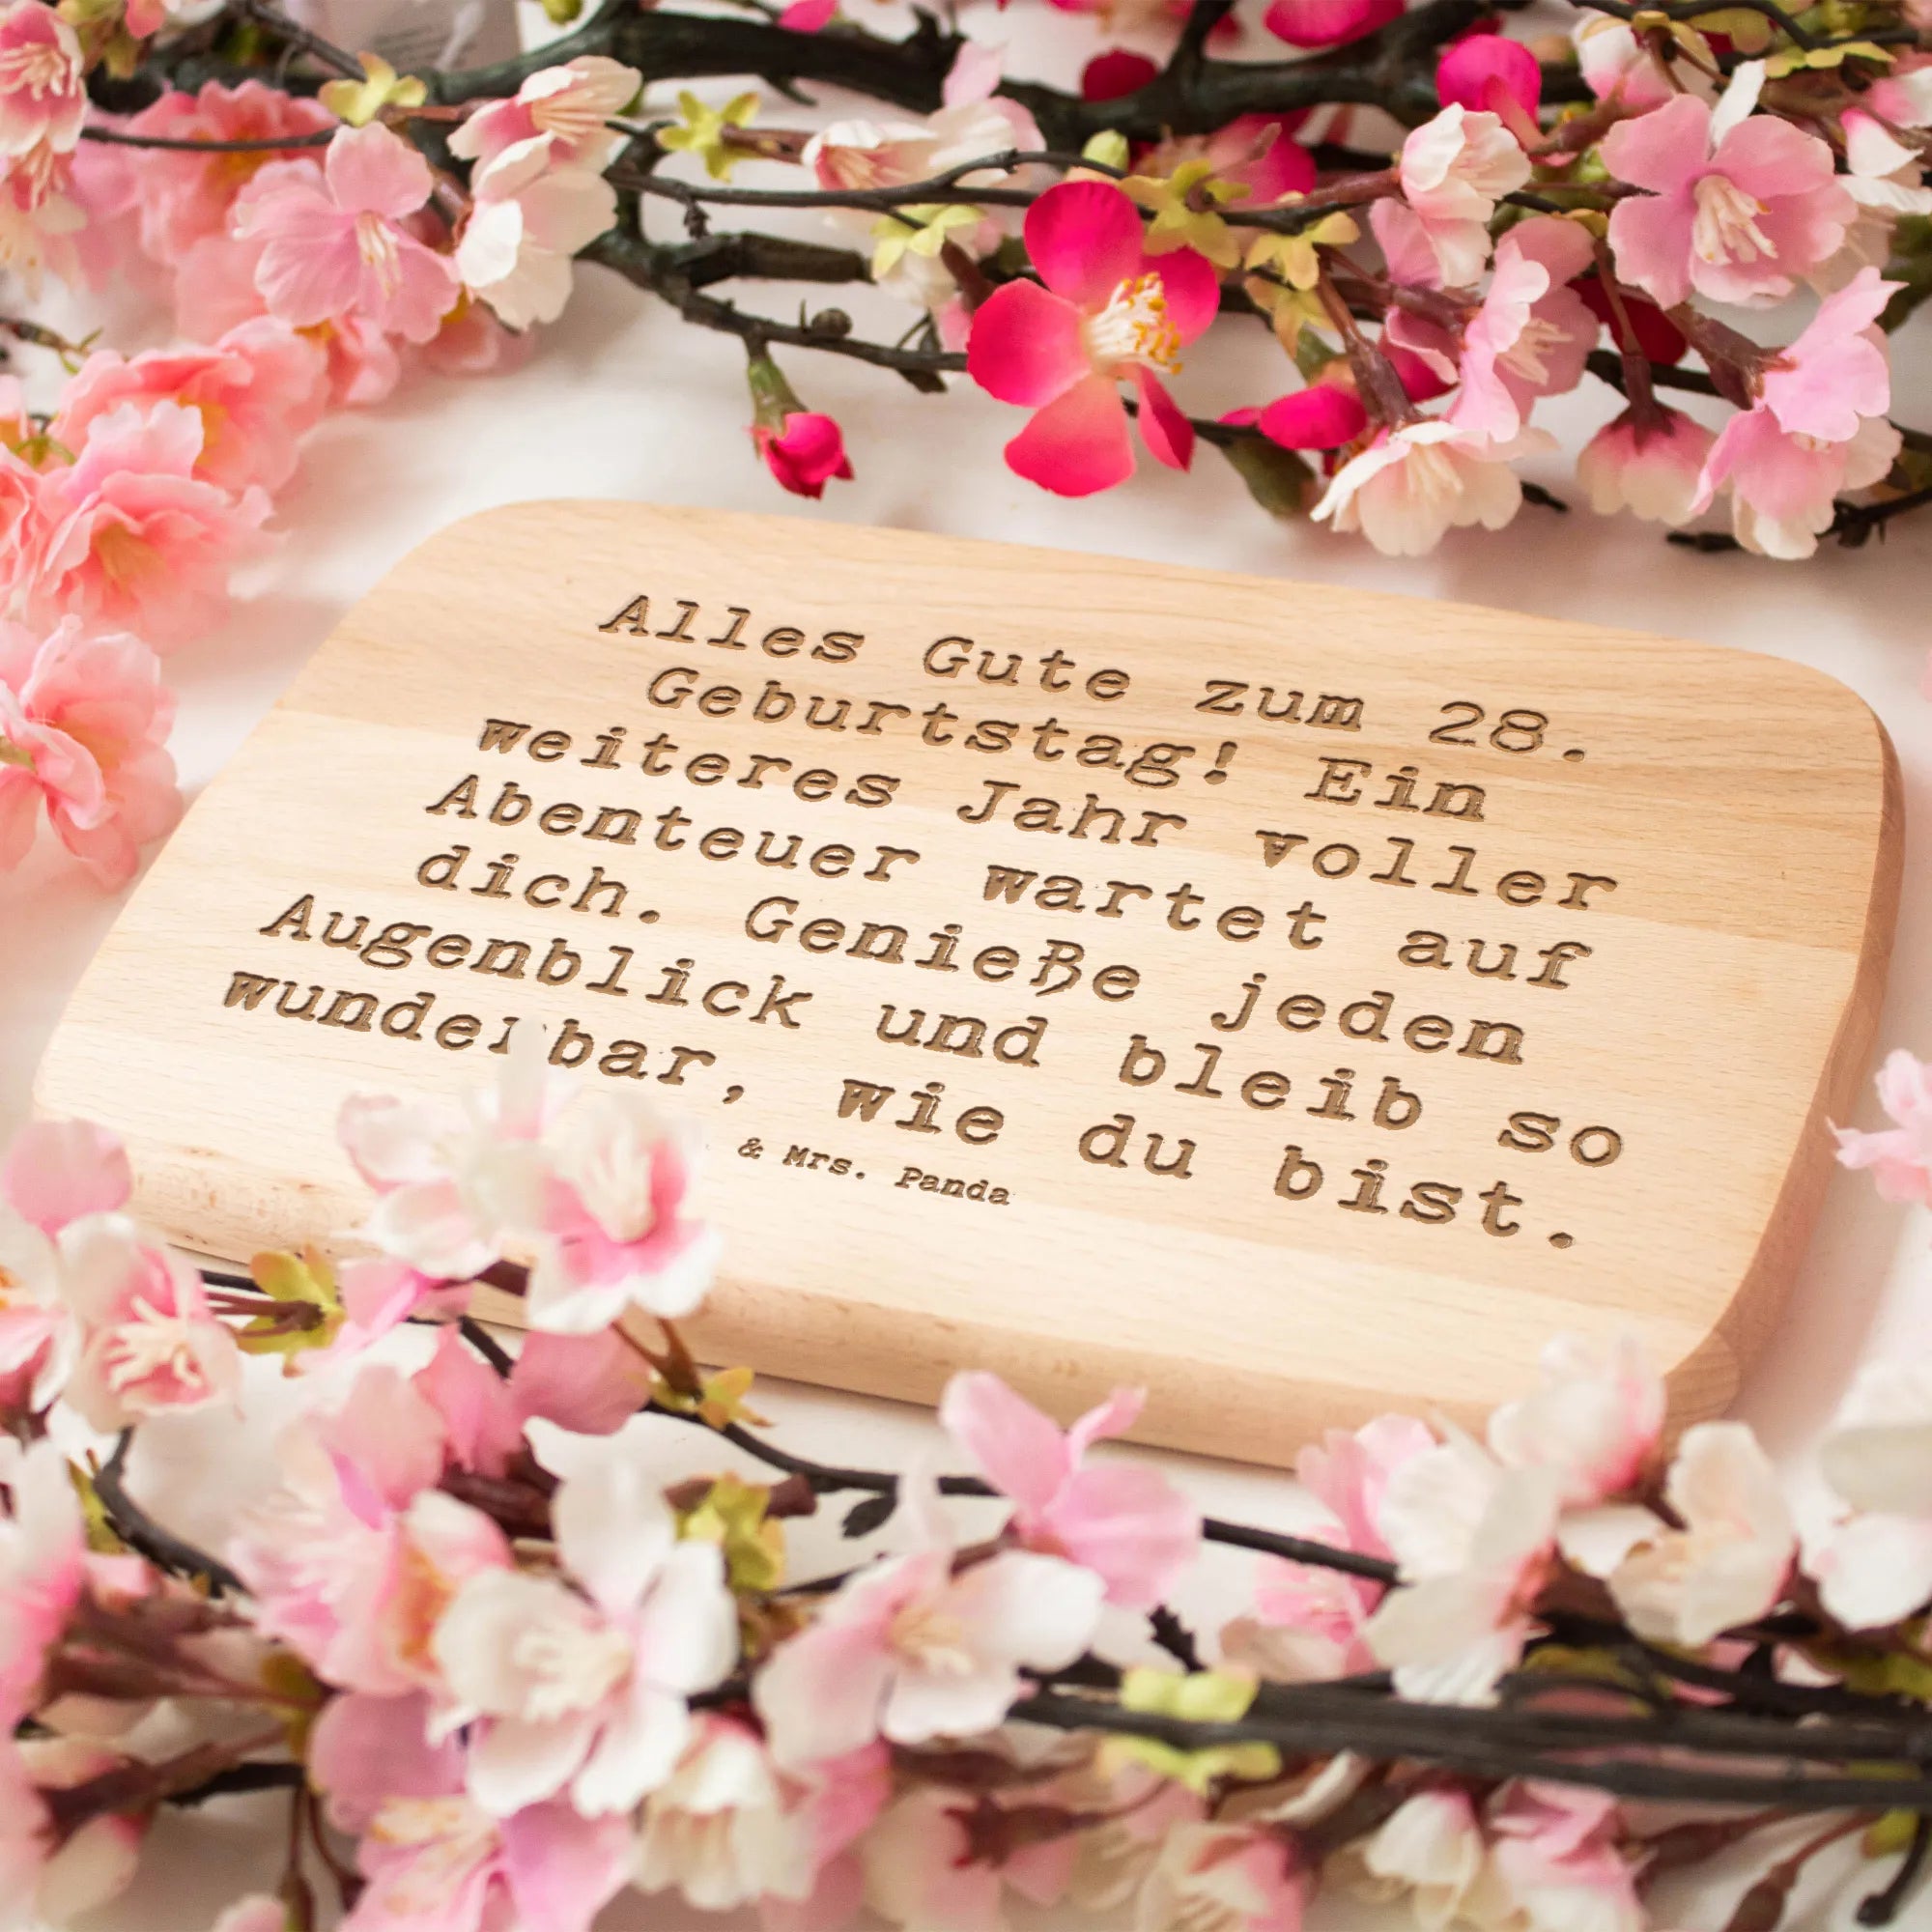 Alles Gute zum 28.
Geburtstag! Ein
weiteres Jahr voller
Abenteuer wartet auf
dich. Genieße jeden
Augenblick und bleib so
wunderbar, wie du bist.
& Mrs. Panda